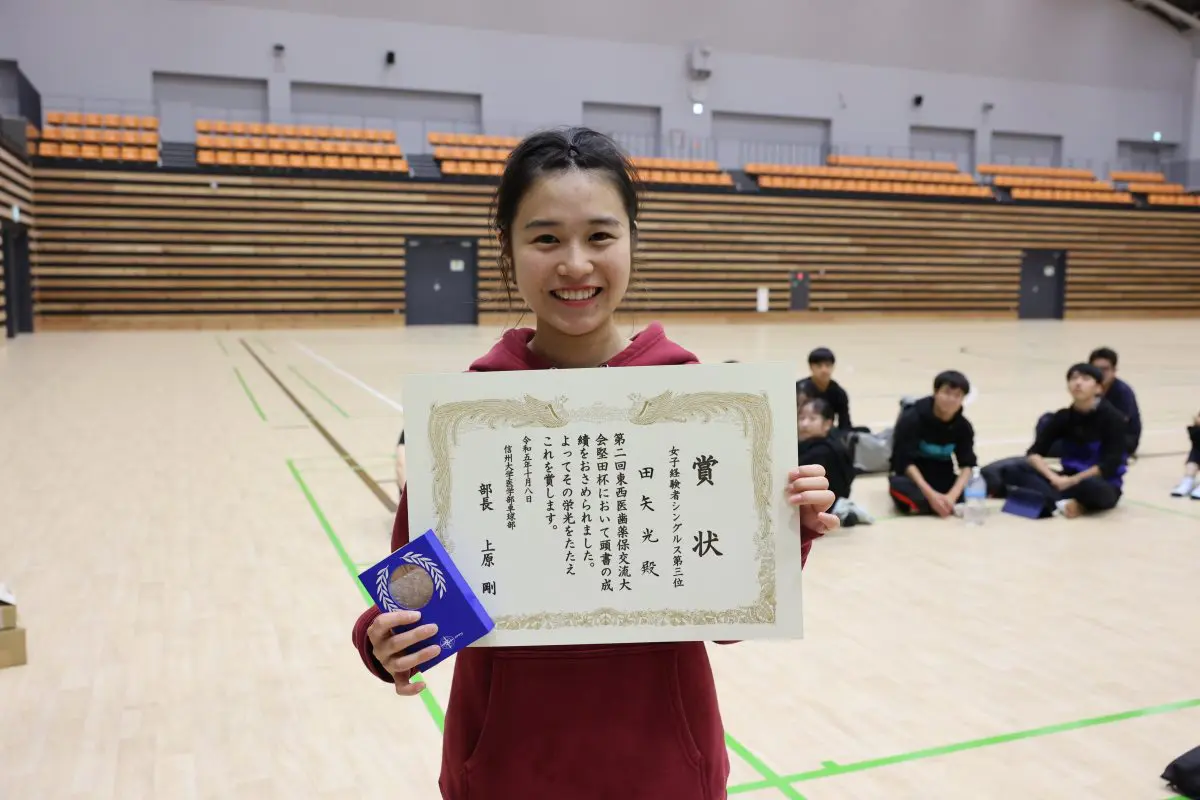 賞状
女子経験者シングルス第三位
田矢光殿
第二回東西医歯薬保交流大
会堅田杯において頭書の成
績をおさめられました。
よってその栄光をたたえ
これを賞します。
令和五年十月八日
信州大学医学部卓球部
部長 上原 剛